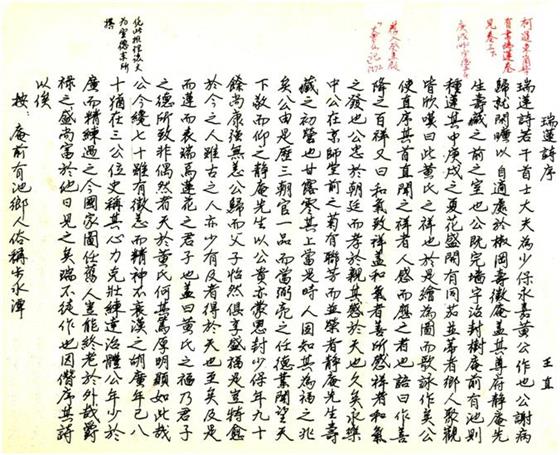 瑞蓮詩序 王直
瑞蓮詩若干首士大夫為少保永嘉黃公作也公謝病
歸就閒曠以自適處於椒岡壽徵庵蓋其尊府靜庵先
生壽藏之前之室也公既完墻宇治封樹庵前有池則
種蓮其中庚戌之夏花盛開有同茄並蒂者鄉人聚觀
皆歎嘆曰此黃氏之祥也於是繪為圖而歌詠作美公
使直序其首直聞之祥者人感而應之者也語曰作善
降之百祥又曰和氣致祥蓋和氣者善所感祥者和氣
之發也公忠於朝廷而孝於親其感於天也久矣永樂
中公在京師堂前之菊有聯蒂而並榮者靜庵先生壽
藏之初營也甘露零其上當是時人固知其為福之兆
矣公由是歷三朝官一品而當弼亮之任德業聞望天
下敬而仰之靜庵先生以公貴亦蒙恩封少保年九十
餘尚康強無恙公歸而父子怡然俱享盛福是豈特愈
於今之人雖古之人亦少有及者得於天也至矣及是
而蓮而表瑞焉蓮花之君子也蓋曰黃氏之福乃君子
之德所致非偶然者天於黃氏何其篤厚明顯如此哉
公今纔七十雖有微恙而精神不衰漢之胡廣年已八
十猶在三公位史稱其心力克壯練達治體公年少於
廣而精練過之今國家圖任舊人豈能終老於外哉爵
祿之盛尚富於他日見之矣瑞不徒作也因僭序其詩
以俟
按:庵前有池鄉人俗稱出水潭